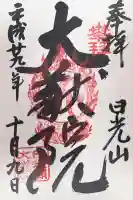 奉拝
日光山
大猷院
平成廿一年
十月九日